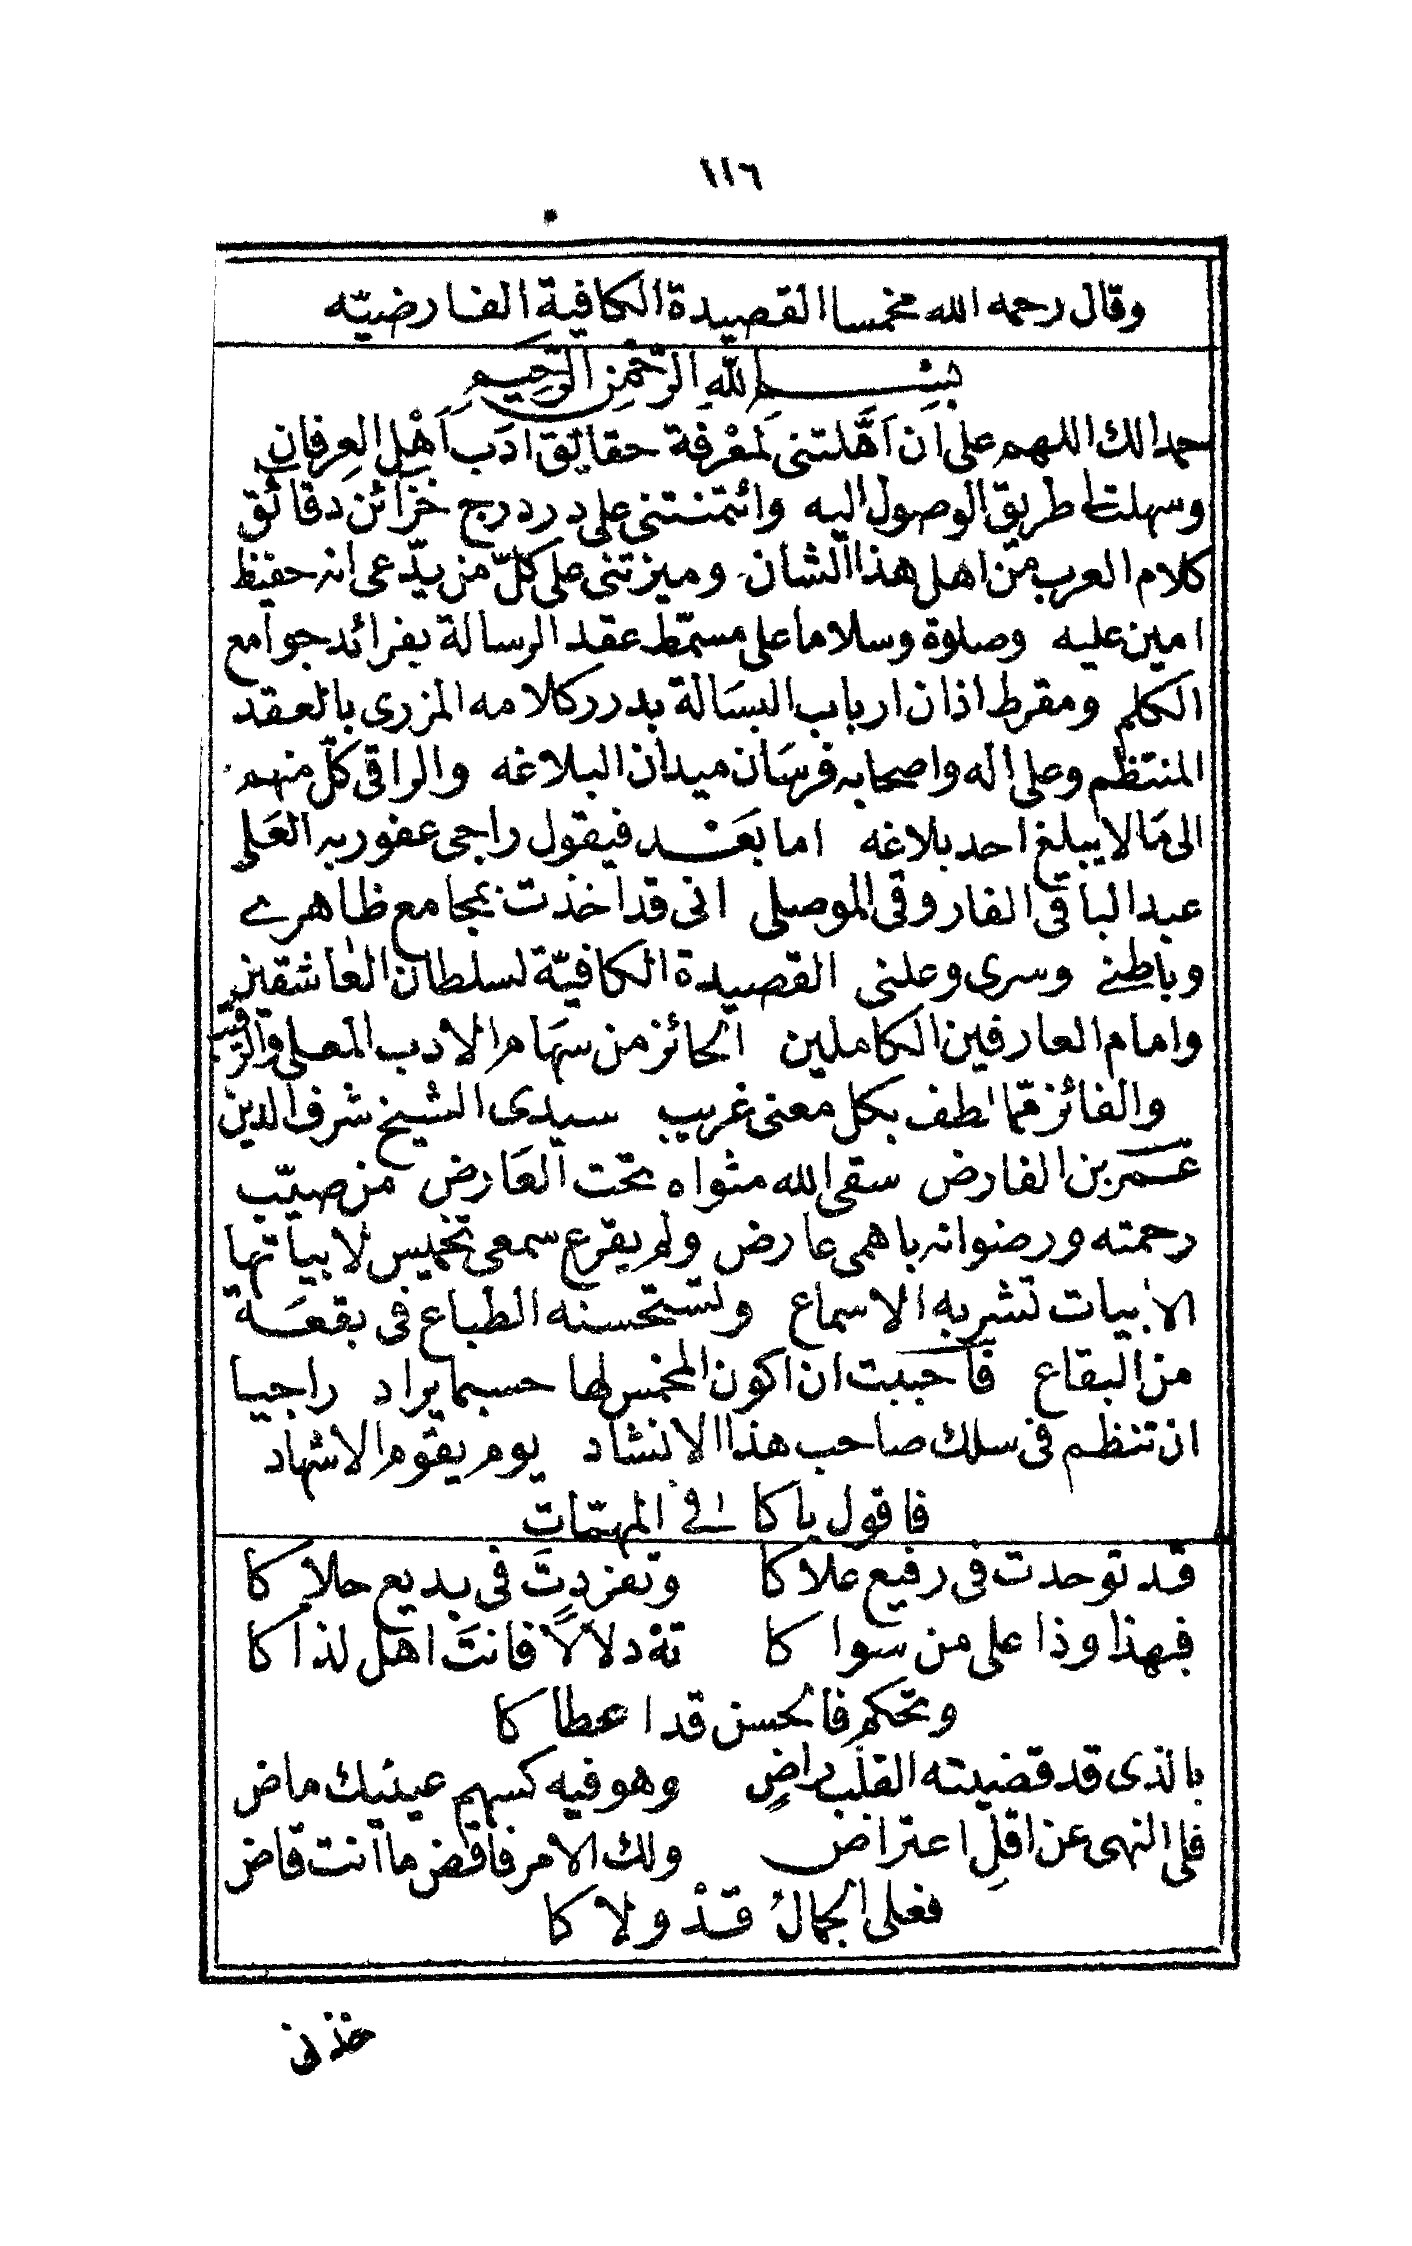 ١١٦
وقال رحمه الله مخمسا القصيدة الكافية الفارضيّه
بِسْمِ اللهِ الرَّحْمٰنِ الرَّحِيمِ
حمدا لك اللهم على اَن اَهَّلتنى لمَعْرِفَة حقايق ادَب اَهْل العِرفان
وسهلت لى طريق الوصول اليه وائتمنتنى على درر درج خزَائن دقائق
كلام العرب من اهل هذا الشان وميزتنى على كلّ من يدّعى انه حفيظ
امين عليه وصلوة وسلاما على مسمّط عقد الرسالة بفرائد جوامع
الكلم ومقرط اذان ارباب البسَالة بدرر كلامه المزرى بالعقد
المنتظم وعلى اله واصحابه فرسَان ميدان البلاغه والراقى كلّ منهم
الى مَا لا يبلغ احد بلاغه اما بَعْد فيقول راجى عفو ربه العَلى
عبد الباقى الفاروقى الموصلى انى قد اخذت بمجامع ظاهرى
وباطنى وسرى وعلنى القصيدة الكافيّة لسلطان العاشقين
وامام العارفين الكاملين الحائز من سهَام الادب المعلى والرّقيب
والفائز ممّا لطف بكل معنى غريب سيدى الشيخ شرف الدين
عمَر بن الفارض سقى الله مثواه تحت العَارض من صيّب
رحمته ورضوانه باهمى عارض ولم يقرع سمعى تخميس لابياتها
الابيات تشربه الاسماع وتستحسنه الطباع فى بقعَة
من البقاع فاحببت ان اكون المخمس لها حسبما يراد راجيا
ان تنظم فى سلك صاحب هذا الانشاد يوم يقوم الاشهاد
فاقول ياكافى المهمّات
قد توحدت فى رفيع عُلاكا وتفردتَ فى بديع حلاكا
فبهذا وذا على من سواكا تهْ دلالاً فانتَ اهل لذاكا
وتحكم فالحسن قد اعطاكا
بالذى قد قضيته القلب راضٍ وهو فيه كسهم عينيك ماض
فلى النهى عن اقلِ اعتراض ولك الامر فاقض ما انت قاض
فعلى الجمالُ قدْ ولاكا
خذنى